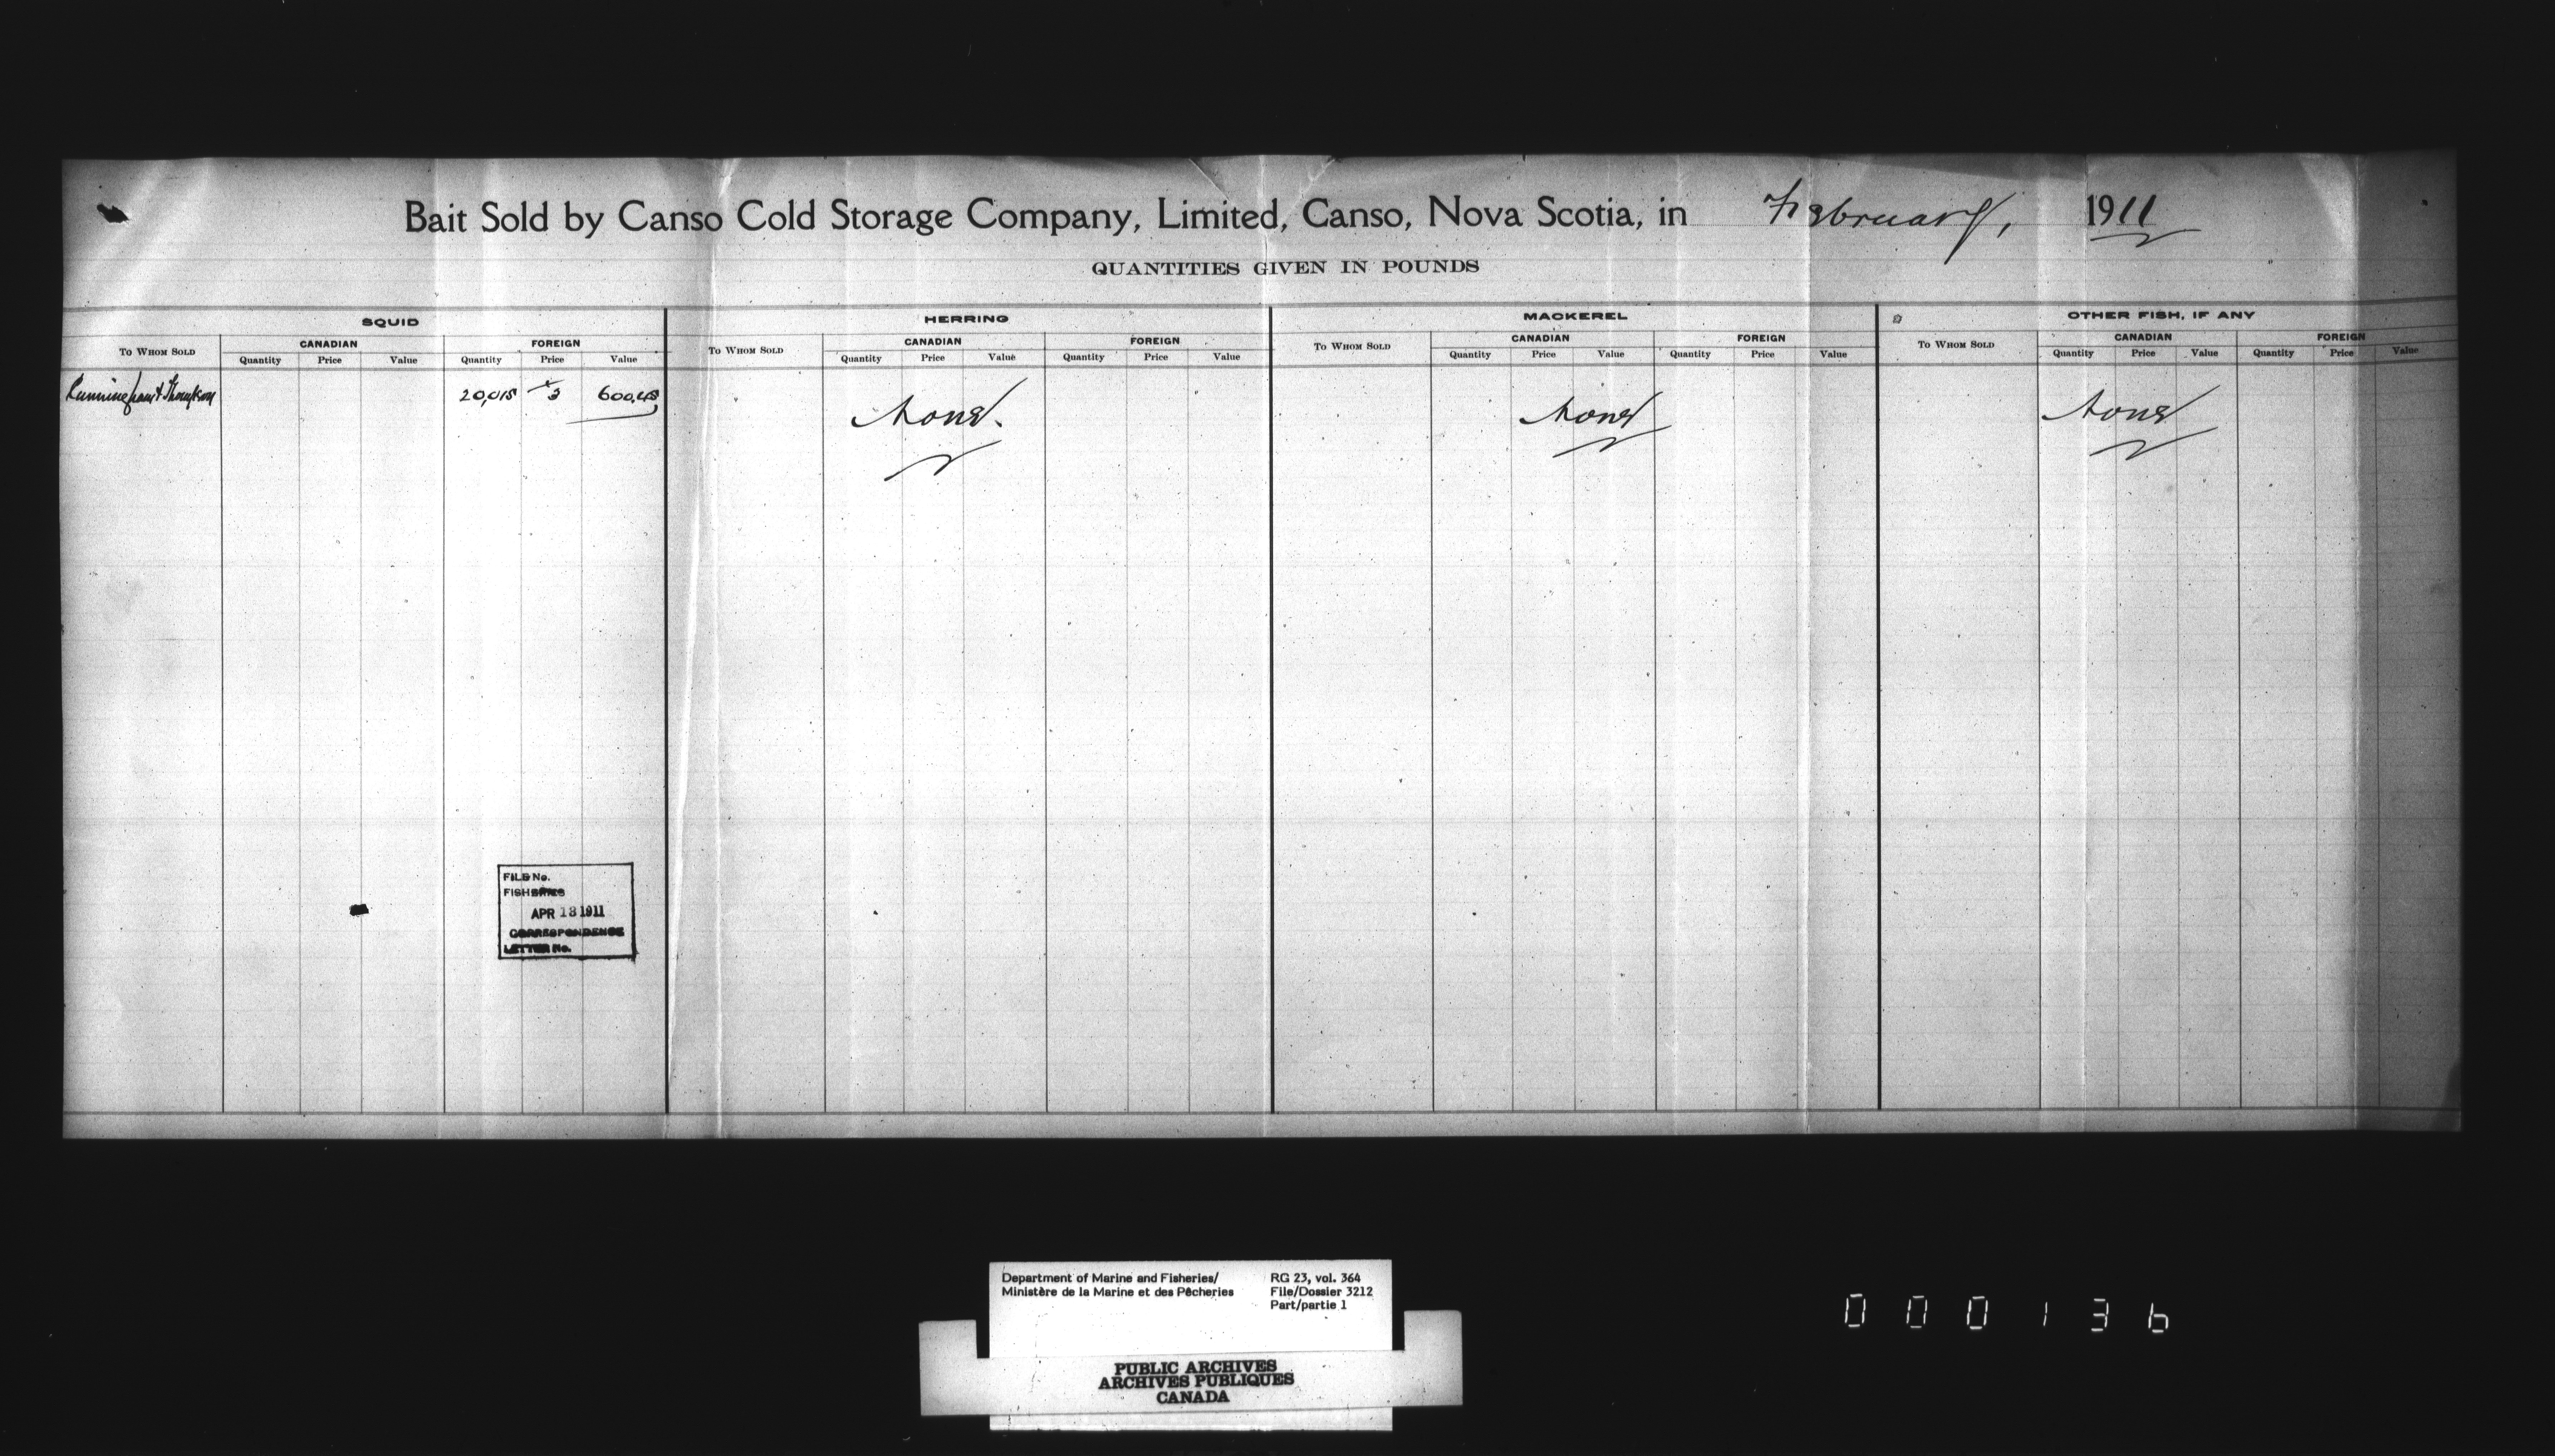 Bait Sold by Canso Cold Storage Company, Limited, Canso, Nova Scotia, in February, 1911
QUANTITIES GIVEN IN POUNDS
SQUID HERRING MACKEREL OTHER FISH, IF ANY
To Whom Sold CANADIAN FOREIGN To Whom Sold CANADIAN FOREIGN To Whom Sold CANADIAN FOREIGN To Whom Sold CANADIAN FOREIGN
Quantity Price Value Quantity Price Value Quantity Price Value Quantity Price Value Quantity Price Value Quantity Price Value Quantity Price Value Quantity Price Value
Cunningham & Thompson 20,015 3 600.45 None. None None
FILE No.
FISHERIES
APR 13 1911
CORRESPONDENCE
LETTER No.
Department of Marine and Fisheries/ RG 23, vol. 364
Ministère de la Marine et des Pêcheries File/Dossier 3212
Part/partie 1
PUBLIC ARCHIVES
ARCHIVES PUBLIQUES
CANADA
000136